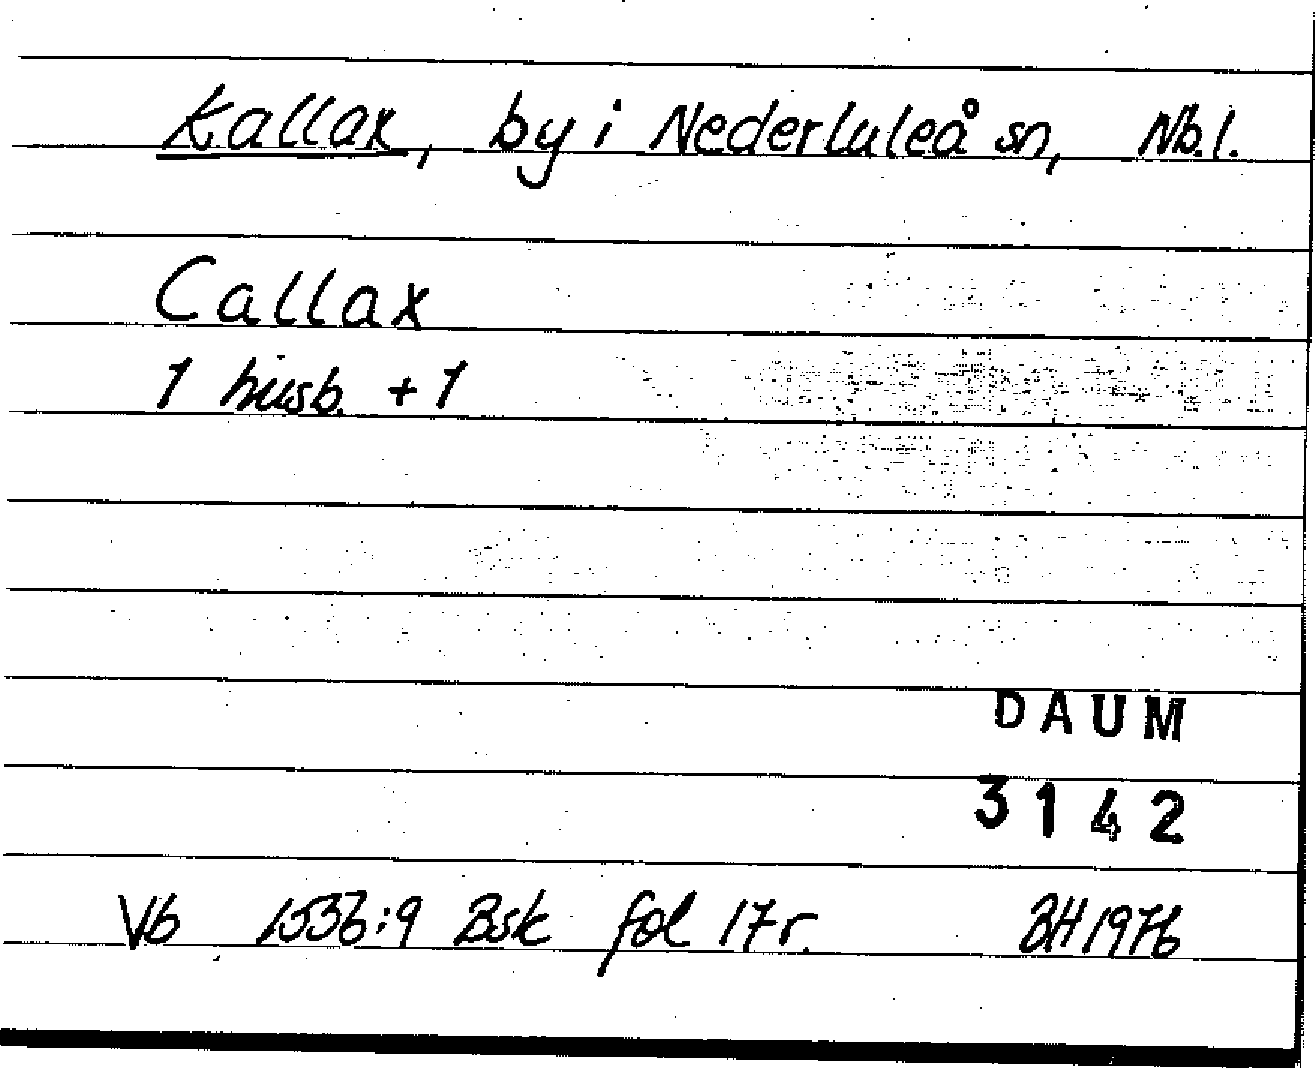 Kallax, by i Nederluleå sn, Nb.l.
Callax
1 husb. + 1
DAUM
3142
Vb 1536:9 Bsk fol 17r. BH 1976